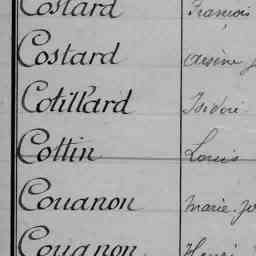 Costard François
Costard Arsène
Cotillard Isidore
Cottin Louis
Couanon Marie
Couanon Henri